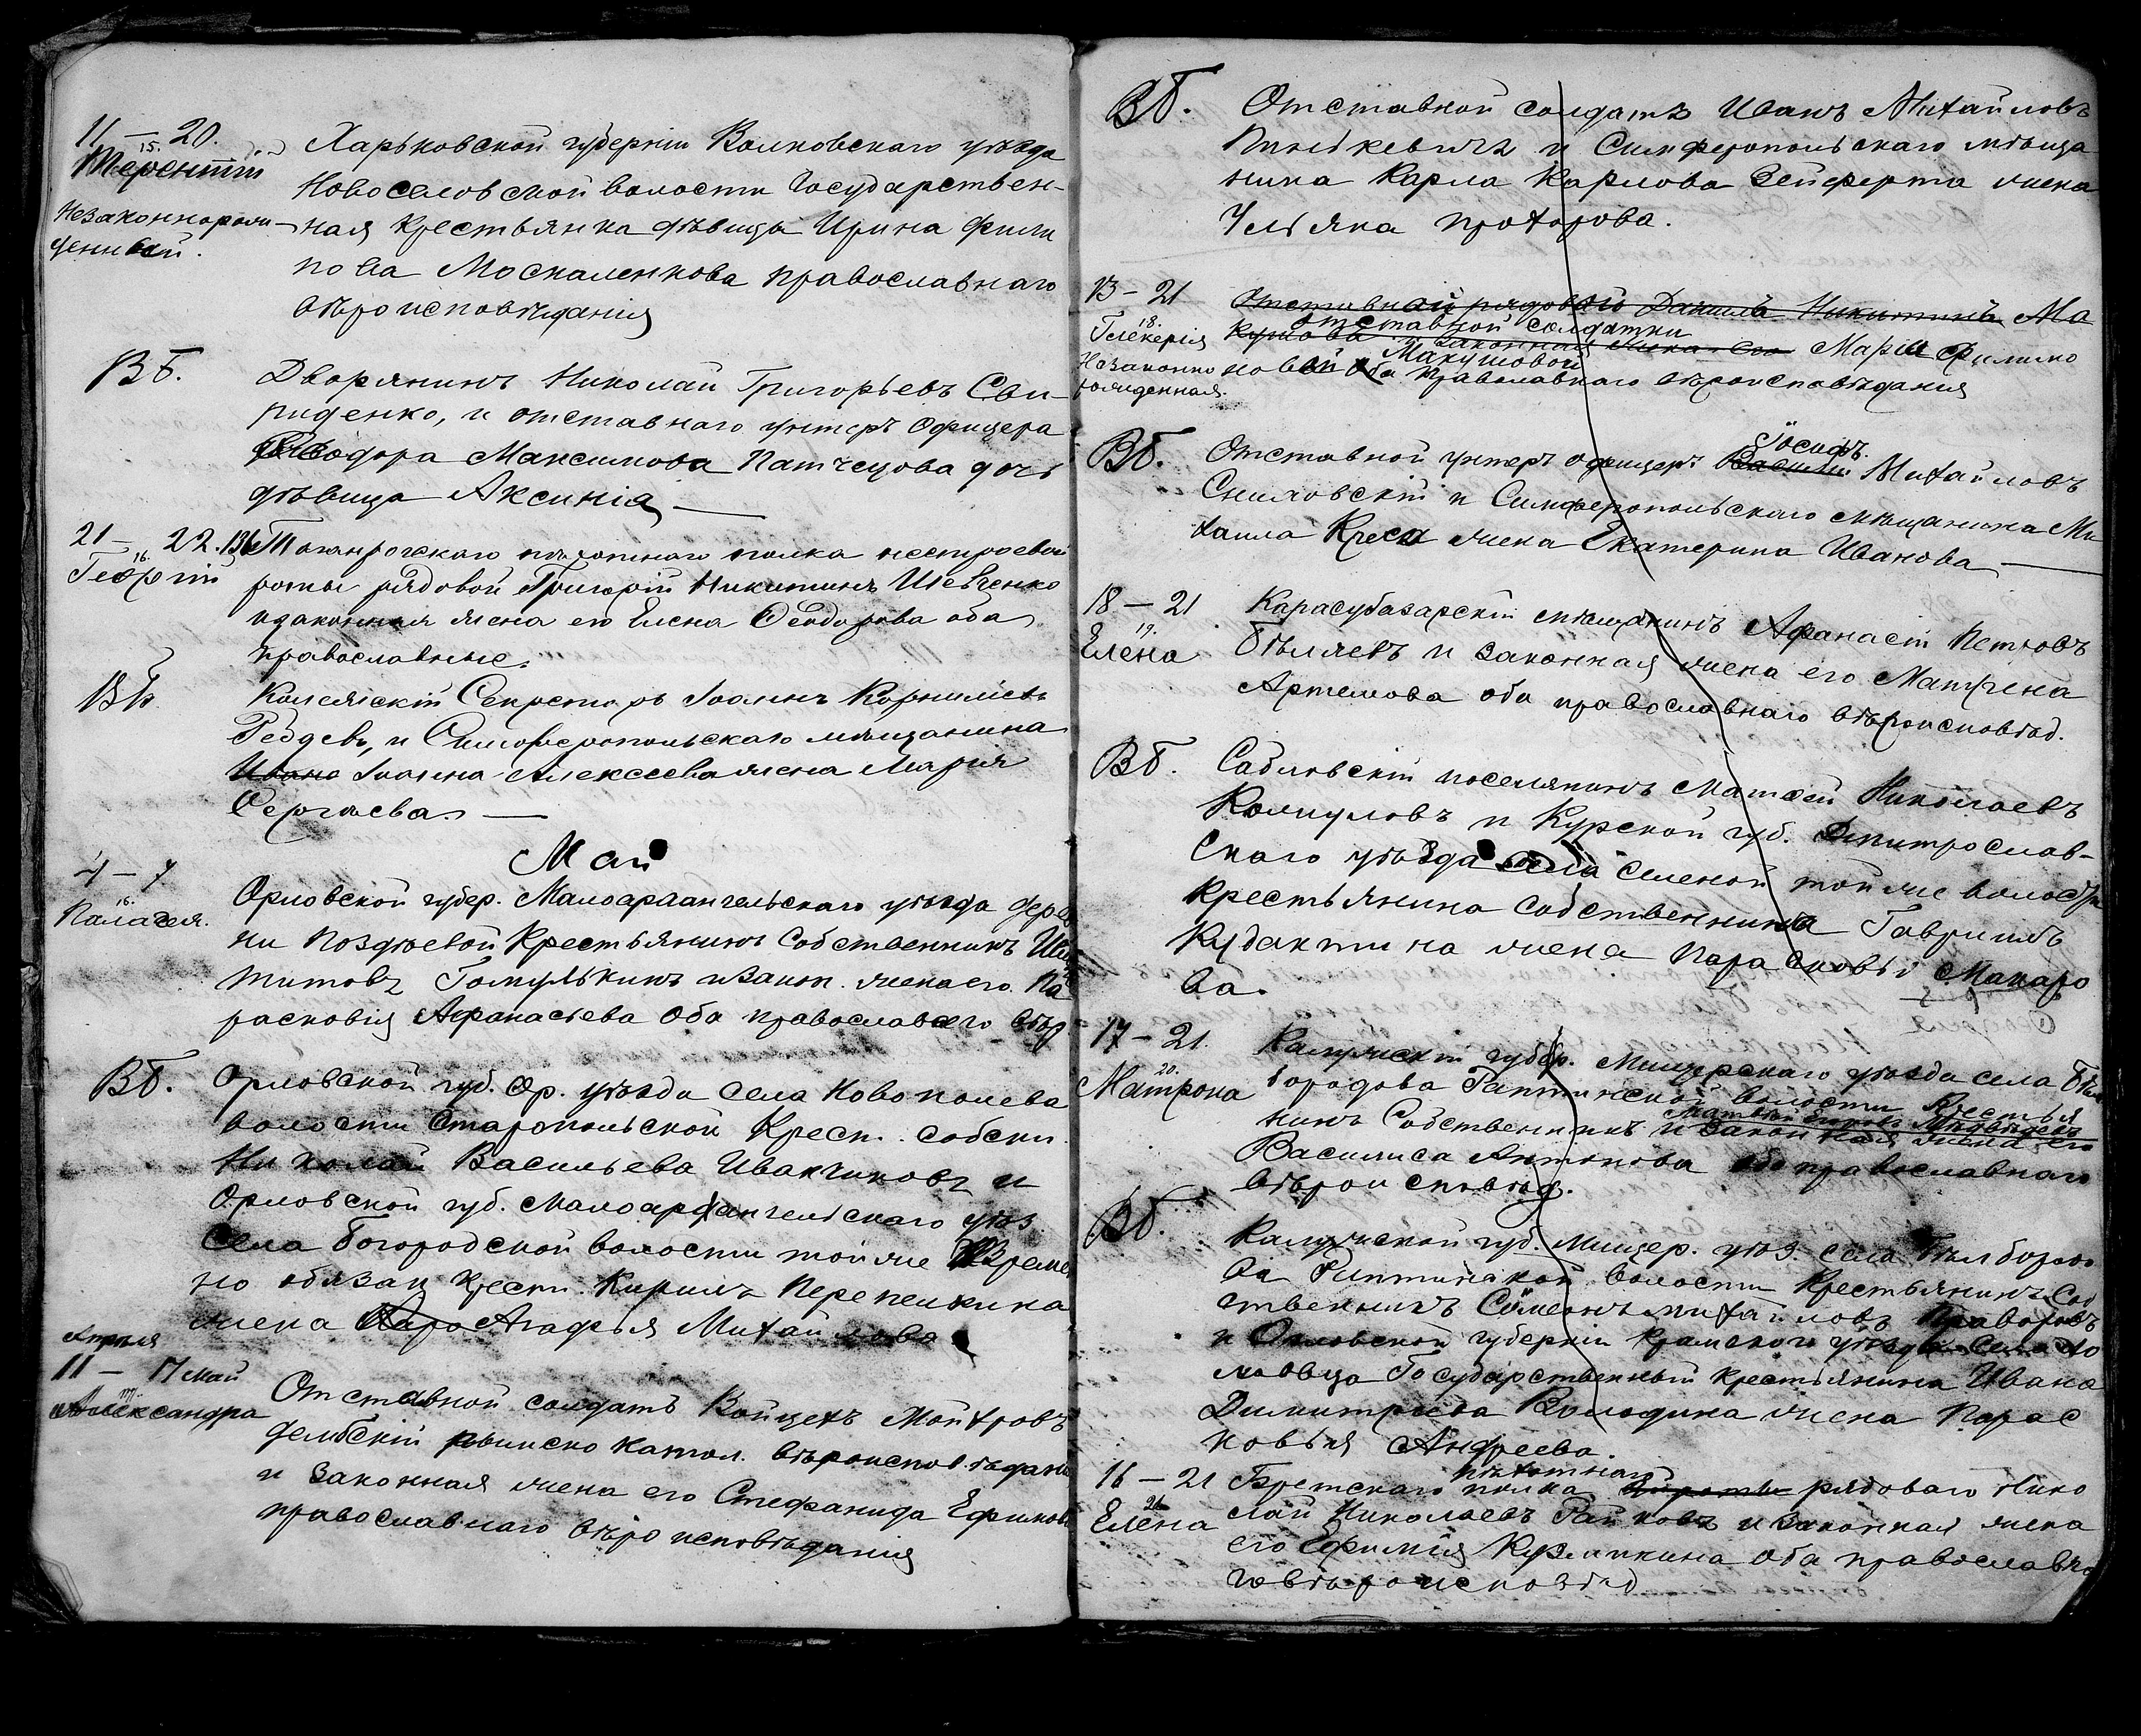 11 – 20.
15.
Терентій
Незаконнорож-
денный.
Харьковской губерніи Валковскаго уѣзда
Новоселовской волости Государствен-
ная крестьянка дѣвица Ирина Фили
пова Москаленкова православнаго
вѣроисповѣданія
ВБ.
Дворянинъ Николай Григорьевъ Сви-
риденко, и отставнаго унтеръ офицера
Ѳеодора Максимова дочь
дѣвица Аксинія
21 – 22.
16.
Георгій
Таганрогскаго пѣхотнаго полка нестроевой
роты рядовой Григорій Никитинъ Шевченко
и законная жена его Елена Ѳеодорова оба
православные.
ВБ.
Коллежскій Секретарь Іоаннъ Корниліевъ
и Симферопольскаго мѣщанина
Ивана Іоанна Алексеева жена Марія
Сергѣева
Май
4 – 7
16.
Палагея.
Орловской губер. Малоархангельскаго уѣзда дерев
ни Поздѣевой Крестьянинъ Собственникъ
Титовъ и закон. жена его Па
расковія Афанасьева оба православнаго вѣр.
ВБ.
Орловской губ. Ор. уѣзда села Новополева
волости Старопольской Крест. собств.
Николай Васильева Иванчиковъ и
Орловской губ. Малоархангельскаго уѣз
села Богородской волости той же Времен
но обязан крест. Кирилъ Перепелкина
жена Агафья Михайлова
Апреля
11 – 17 Май
17.
Александра
Отставной солдатъ Войцехъ
римско катол. вѣроисповѣдан
и законная жена его Стефанида Ефимова
православнаго вѣроисповѣданія
ВБ.
Отставной солдатъ Иванъ Михайловъ
и Симферопольскаго мѣща
нина Карла Карлова Зейферта жена
Ульяна Прохорова.
13 – 21
18.
Гликерія
Незаконно
рожденная.
Отставной рядовой Даніилъ Никитинъ Ма
отставной солдатки
кушова законная жена его Марія Филимо
Макушовой
новой оба православнаго вѣроисповѣданія
ВБ.
Іосифъ
Отставной унтеръ офицеръ Василій Михайловъ
и Симферопольскаго мѣщанина Ми
хаила жена Екатерина Иванова
18 – 21
19.
Елена
Карасубазарскій мѣщанинъ Афанасій Петровъ
Бѣляевъ и законная жена его Матрена
Артемова оба православнаго вѣроисповѣд.
ВБ.
Сабловскій поселянинъ Матвей Николаевъ
и Курской губ. Дмитрослав-
скаго уѣзда села той же волости
крестьянина собственника Гавріилъ
жена Парасковья Макаро
ва.
17 – 21.
20.
Матрона
Калужской губер. Мищерскаго уѣзда села Бѣл
бородова волости Крестья
нинъ Собственникъ и законная жена его
Василиса Антонова оба православнаго
вѣроисповѣд.
ВБ.
Калужской губ. Мищер. уѣз. села
волости Крестьянинъ Соб
ственникъ Сѵмеонъ Михайловъ
и Орловской губерніи Кромскаго уѣзда села
Государственный крестьянина Ивана
Димитріева Володина жена Парас
ковья Андреева.
16 – 21
21
Елена
пѣхотнаго
Брестскаго полка рядоваго Нико
лай Николаевъ и законная жена
его Ефимія оба православна
го вѣроисповѣд